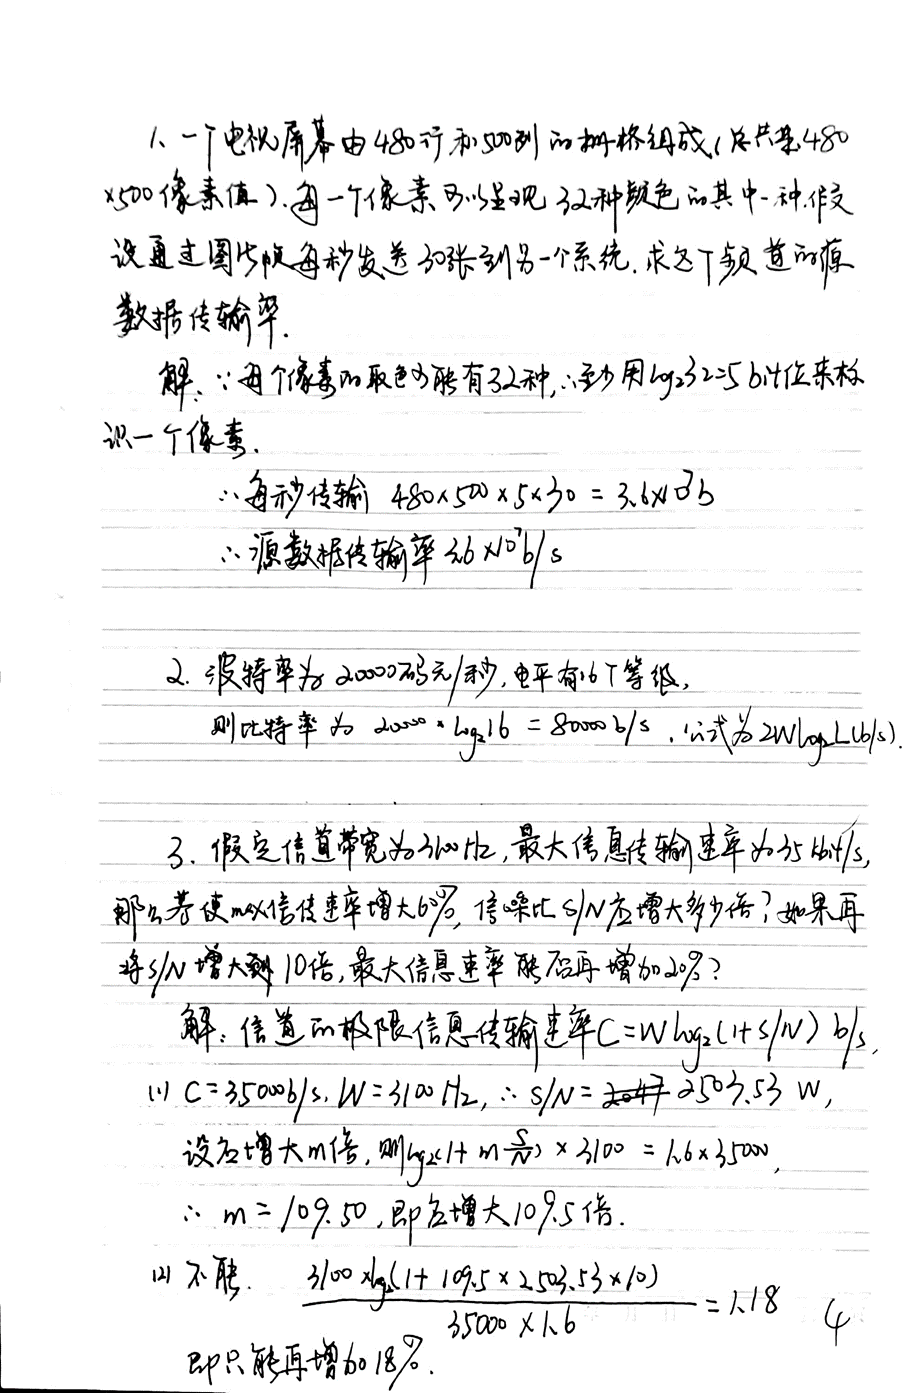 1、一个电视屏幕由480行和500列的栅格组成(总共是480
×500像素值).每一个像素可以呈现32种颜色的其中一种.假
设通过图片帧每秒发送30张到另一个系统.求这个频道的源
数据传输率.
解:∵每个像素的取色可能有32种,∴至少用log₂32=5bit位来标
识一个像素.
∴每秒传输 480×500×5×30=3.6×10⁷b
∴源数据传输率3.6×10⁷b/s
2.波特率为20000码元/秒,电平有16个等级,
则比特率为 20000*log₂16=80000b/s.公式为2Wlog₂L(b/s).
3.假定信道带宽为3100Hz,最大信息传输速率为35kbit/s,
那么若使max信传速率增大60%,信噪比S/N应增大多少倍?如果再
将S/N增大到10倍,最大信息速率能否再增加20%?
解:信道的极限信息传输速率C=Wlog₂(1+S/N) b/s,
(1) C=35000b/s,W=3100Hz,∴S/N=2503.53 W,
设应增大m倍,则log₂(1+m S/N)×3100=1.6×35000,
∴ m=109.50,即应增大109.5倍.
(2) 不能. 3100×log₂(1+109.5×2503.53×10)/35000×1.6=1.18
即只能再增加18%.
4